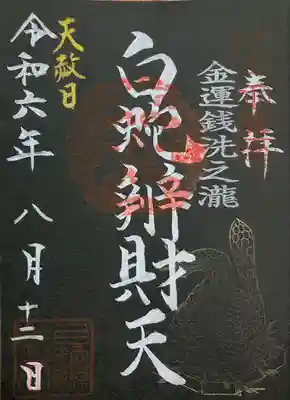 奉拝
金運銭洗之瀧
白蛇辨財天
天赦日
令和六年 八月 十二日